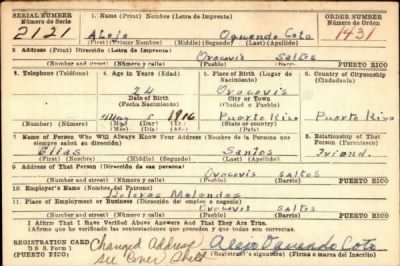 SERIAL NUMBER
Número de Serie
2121
1. Name (Print) Nombre (Letra de Imprenta)
Alejo Oquendo Coto
(First) (Primer Nombre) (Middle) (Segundo) (Last) (Apellido)
ORDER NUMBER
Número de Orden
1431
2 Address (Print) Dirección (Letra de Imprenta)
Orocovis Saltos
PUERTO RICO
3. Telephone (Teléfono)
4. Age in Years (Edad)
24
Date of Birth
(Fecha Nacimiento)
5 1916
(Mes) (Día) (Año)
5. Place of Birth (Lugar de Nacimiento)
Orocovis
City or Town
(Ciudad o Pueblo)
Puerto Rico
State or Country
(Estado o país)
6. Country of Citizenship
(Ciudadanía)
Puerto Rico
7 Name of Person Who Will Always Know Your Address (Nombre de la Persona que
siempre sabrá su dirección)
Elias Santos
(First) (Nombre) (Middle) (Segundo) (Last) (Apellido)
8. Relationship of That
Person (Parentesco)
Friend.
9. Address of That Person (Dirección de esa persona)
Orocovis Saltos
PUERTO RICO
10 Employer's Name (Nombre del Patrono)
Melendez
11. Place of Employment or Business (Dirección del empleo o negocio)
Orocovis Saltos
PUERTO RICO
I Affirm That I Have Verified Above Answers And That They Are True.
(Afirmo que he verificado las contestaciones que preceden y que todas son correctas.
REGISTRATION CARD
D S S Form 1
(PUERTO RICO)
Changed Address
see Cover Sheet
Alejo Oquendo Coto
(Registrant's signature) (Firma o marca del Inscrito)